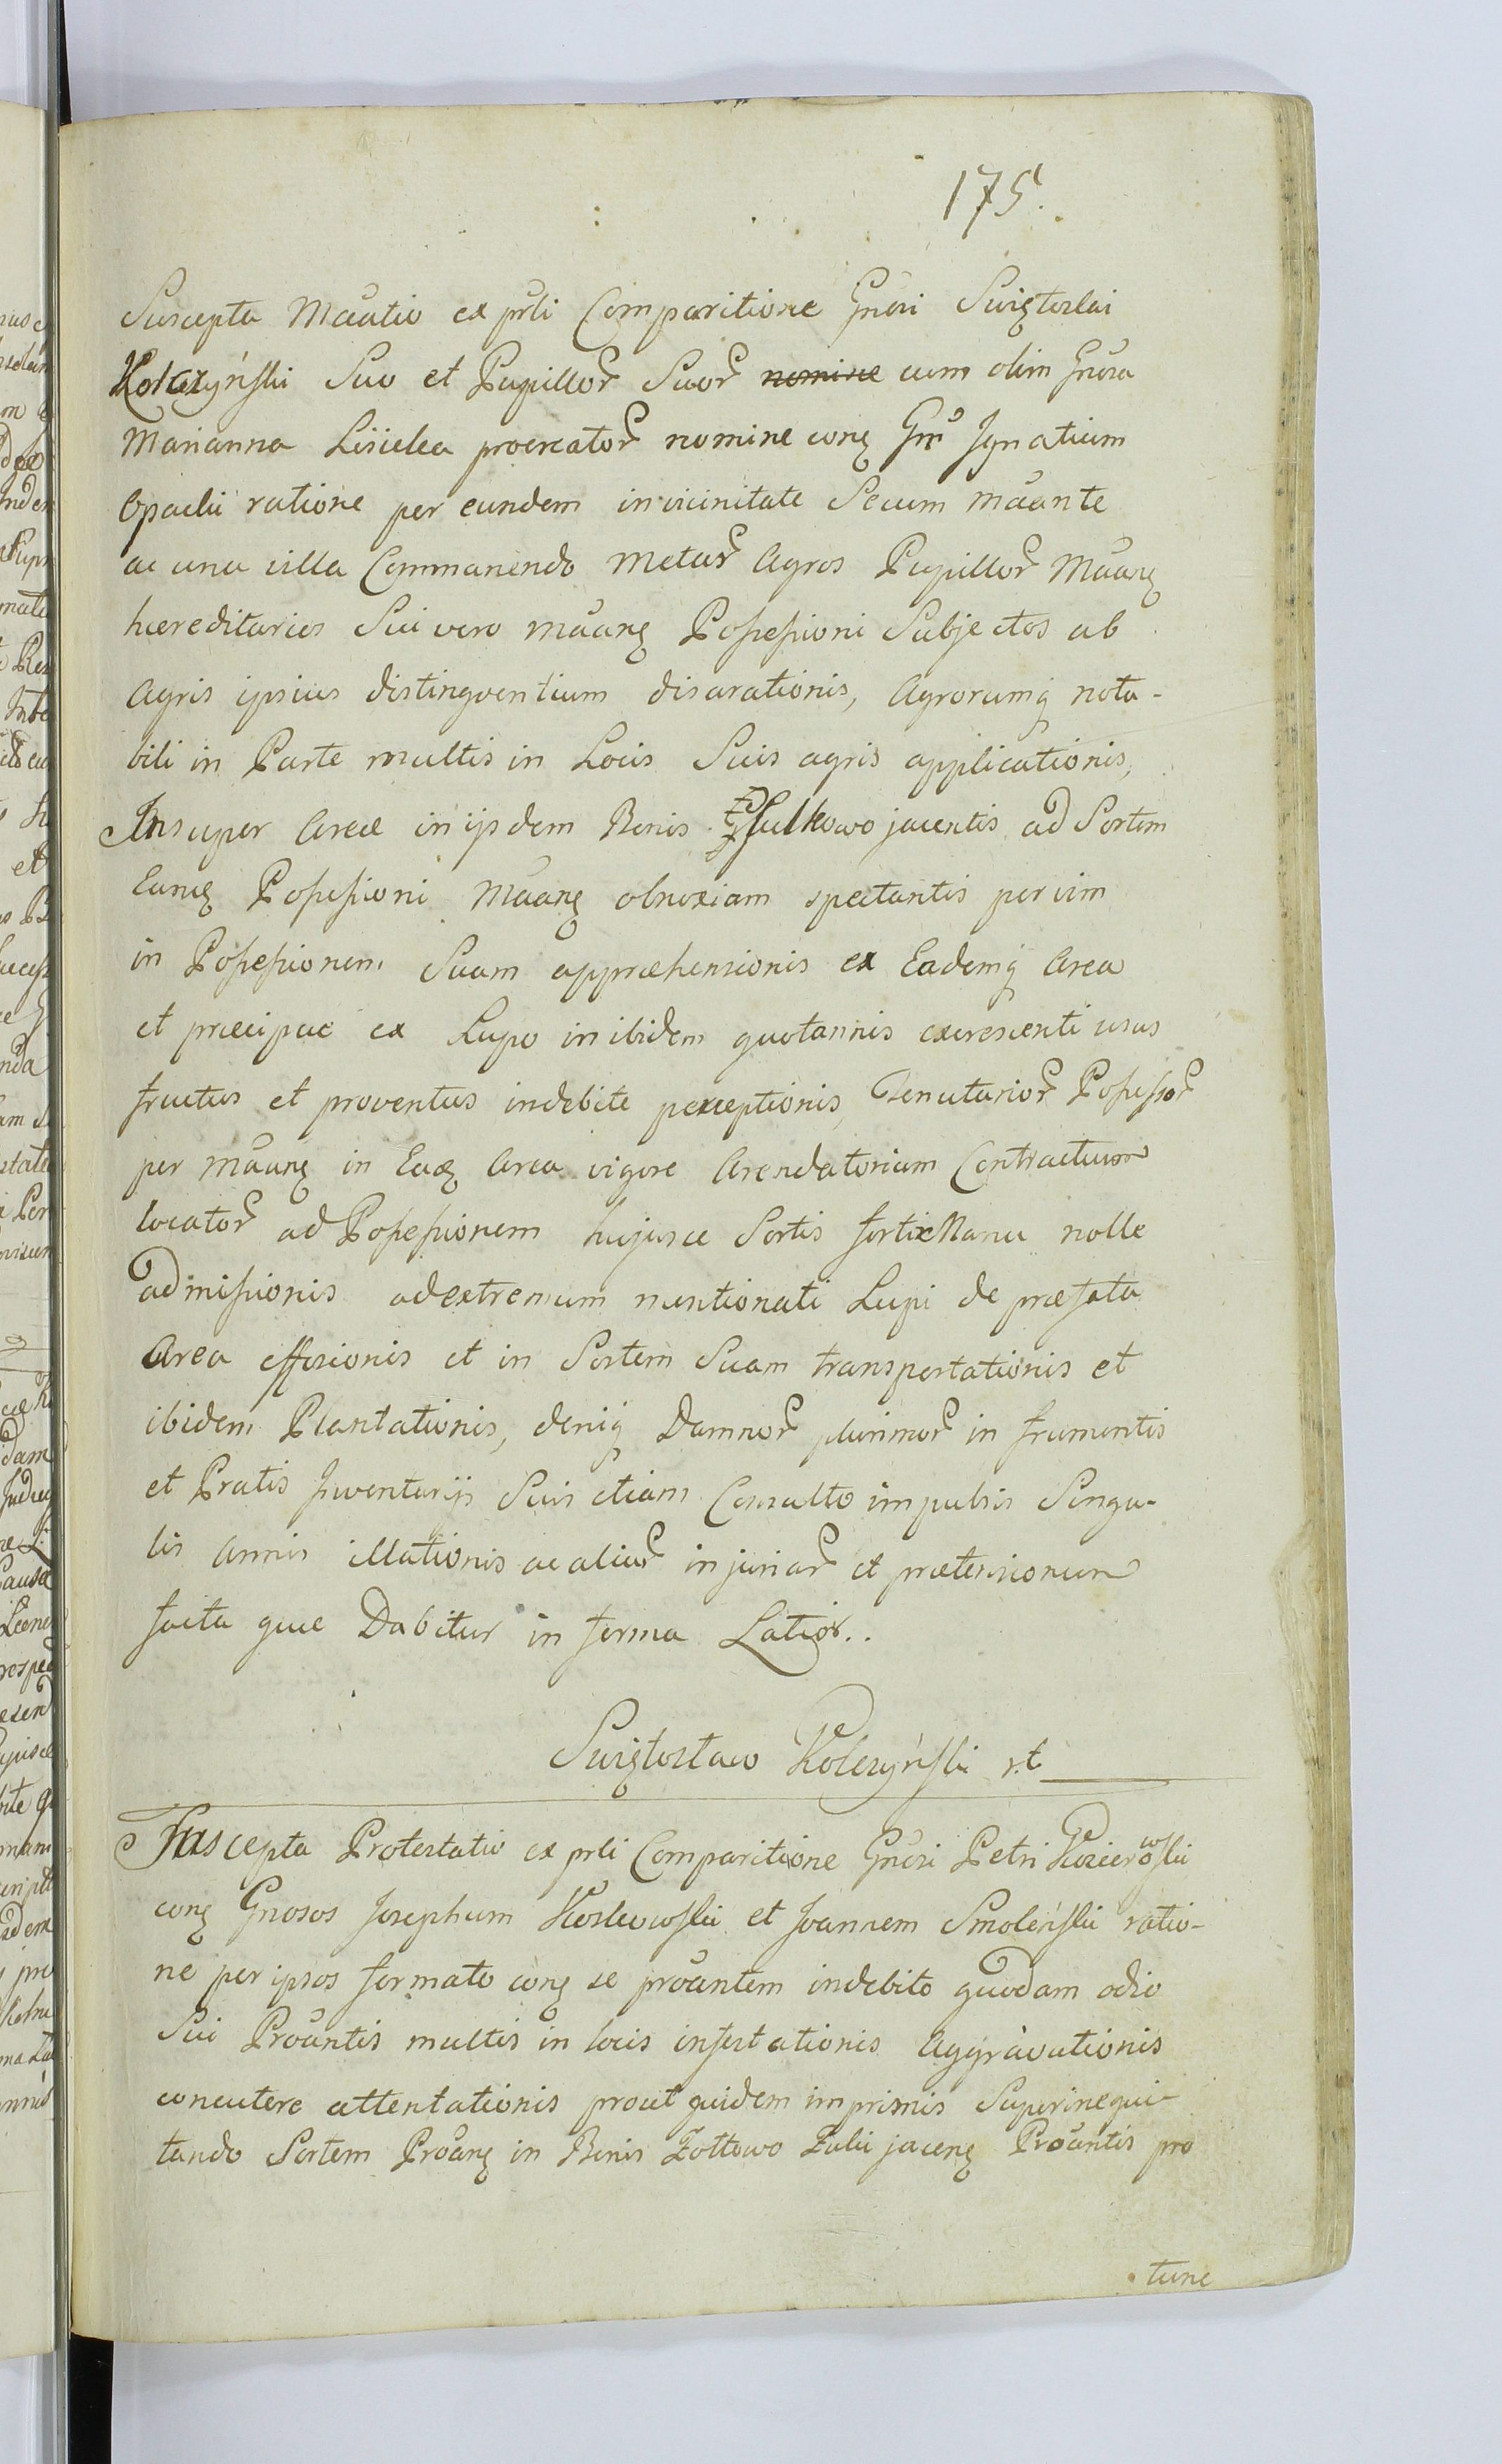 175.
Suscepta Maãtio ex prli Comparitione Gnosi Swiętoslai
Kolczyński Suo et Pupillor Suor nomine cum olim Gnosa
Marianna Lisicka procreator nomine conq Gm Ignatium
Opacki ratione per eundem in vicinitate Secum mãante
ac una villa Commanendo metar Agros Pupillor Mãanq
hæreditarios Sui vero mãanq Possessioni Subjectos ab
Agris ipsius distingventium disarationis, Agrorumq nota-
bili in Parte multis in Locis Suis agris applicationis,
Insuper Areæ in ijsdem Bonis Sulkowo jacentis ad Sortem
Eamq Possessioni Mãanq obnoxiam spectantis per vim
in Possessionem Suam appræhensionis ex Eademq Area
et præcipue ex Lupo in ibidem quotannis excrescenti usus
fructus et proventus indebite perceptionis, Tenutarior Possessor
per mãanq in Eaq Area vigore Arendatorium Contractuum
locator ad Possessionem hujusce Sortis forti Manu nolle
admissionis ad extremum mentionati Lupi de præfata
Area effosionis et in Sortem Suam transportationis et
ibidem Plantationis, deniq Damnor plurimor in frumentis
et Pratis Inventarijs Suis etiam Consulto impulsis Singu-
lis Annis illationis ac aliar injuriar et prætensionum
facta quæ Dabitur in forma Latior..
Swiętosław Kolczyński rt
Suscepta Protestatio ex prli Comparitione Gnosi Petri Kosierowski
conq Gnosos Josephum Kozłowski et Joannem Smoleński ratio-
ne per ipsos formato conq se prõantem indebito quodam odio
Sui Prõantis multis in locis infestationis Aggravationis
concutere attentationis prout quidem imprimis Superinequi-
tando Sortem Prõanq in Bonis Zołtowo Żuki jacenq Prõantis pro
tunc